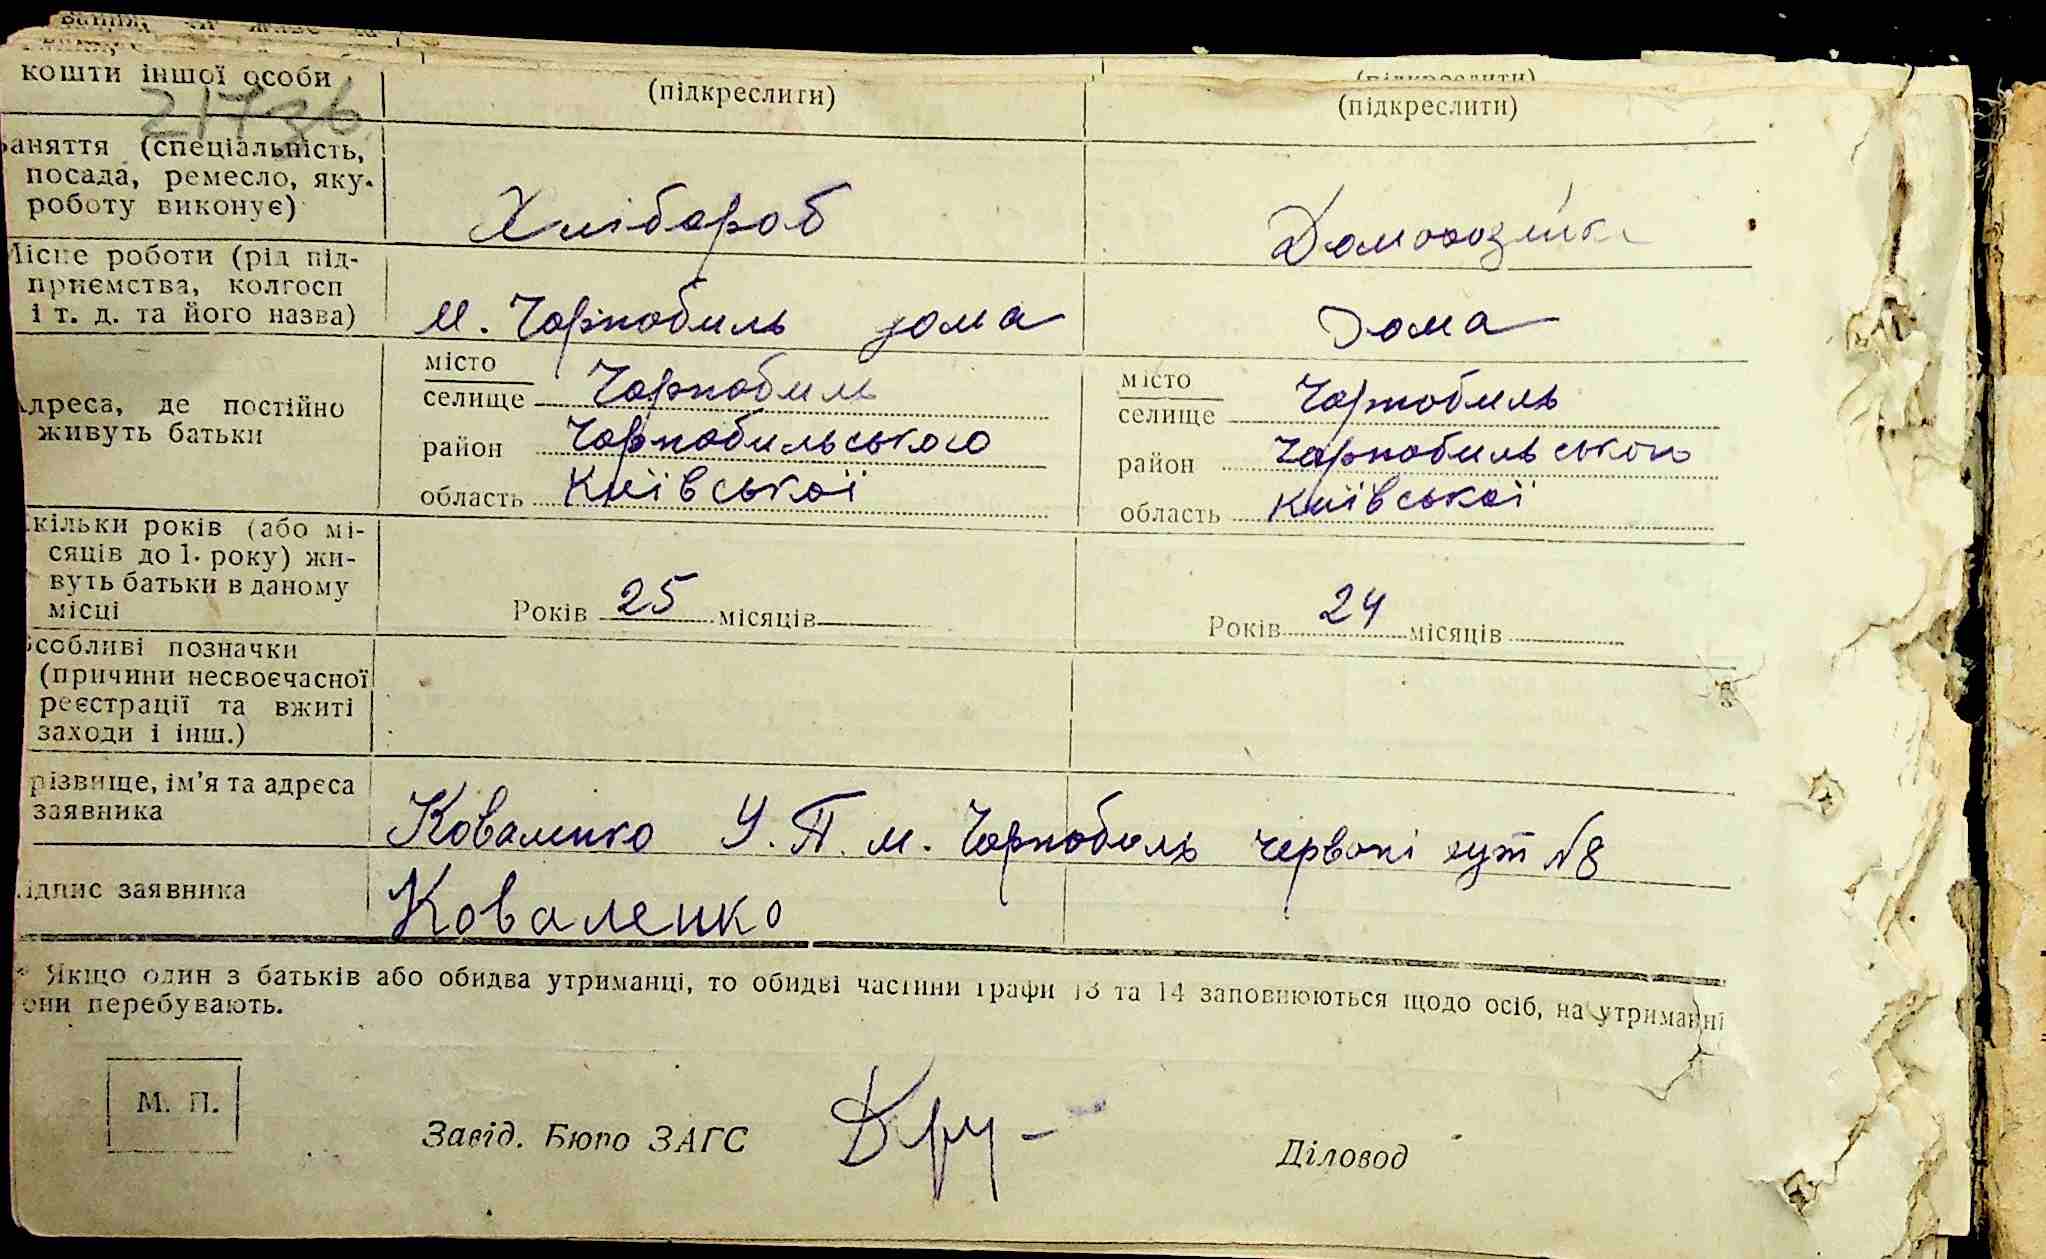 кошти іншої особи
(підкреслити)
(підкреслити)
(підкреслити)
21736
аняття (спеціальність,
посада, ремесло, яку
роботу виконує)
Хлібороб
Домохозяйка
Місце роботи (рід під-
приємства, колгосп
і т. д. та його назва)
М. Чорнобиль дома
Дома
Адреса, де постійно
живуть батьки
місто
селище Чорнобиль
район Чорнобильського
область Київської
місто
селище Чорнобиль
район Чорнобильського
область Київської
кільки років (або мі-
сяців до 1. року) жи-
вуть батьки в даному
місці
Років 25 місяців
Років 24 місяців
собливі позначки
(причини несвоєчасної
реєстрації та вжиті
заходи і інш.)
різвище, ім'я та адреса
заявника
Коваленко У. П. м. Чорнобиль червоні хут №8
ідпис заявника
Коваленко
* Якщо один з батьків або обидва утриманці, то обидві частини графи 13 та 14 заповнюються щодо осіб, на утриманні
они перебувають.
М. П.
Завід. Бюро ЗАГС
Діловод